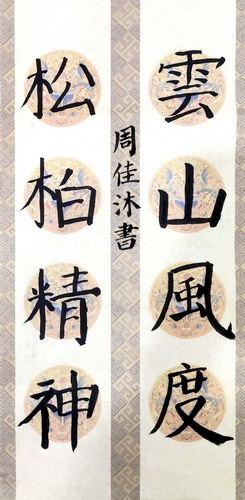 雲山風度
松柏精神
周佳沐書